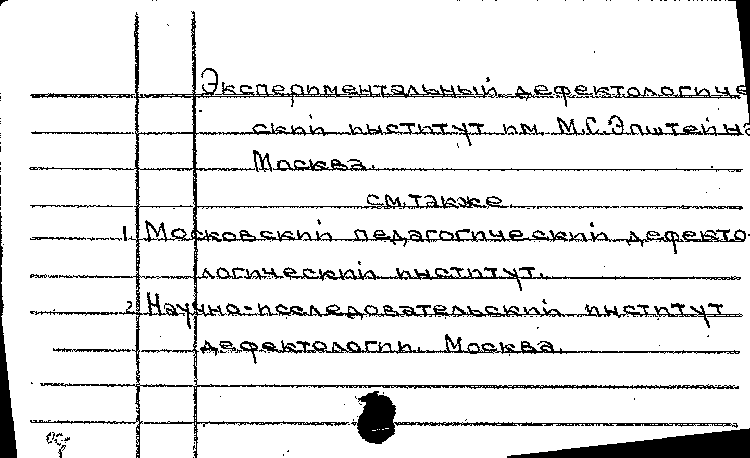 Экспериментальный дефектологиче
ский институт им. М.С.Эпштейна
Москва.
см.также
1. Московский педагогический дефекто-
логический институт.
2. Научно-исследовательский институт
дефектологии. Москва.